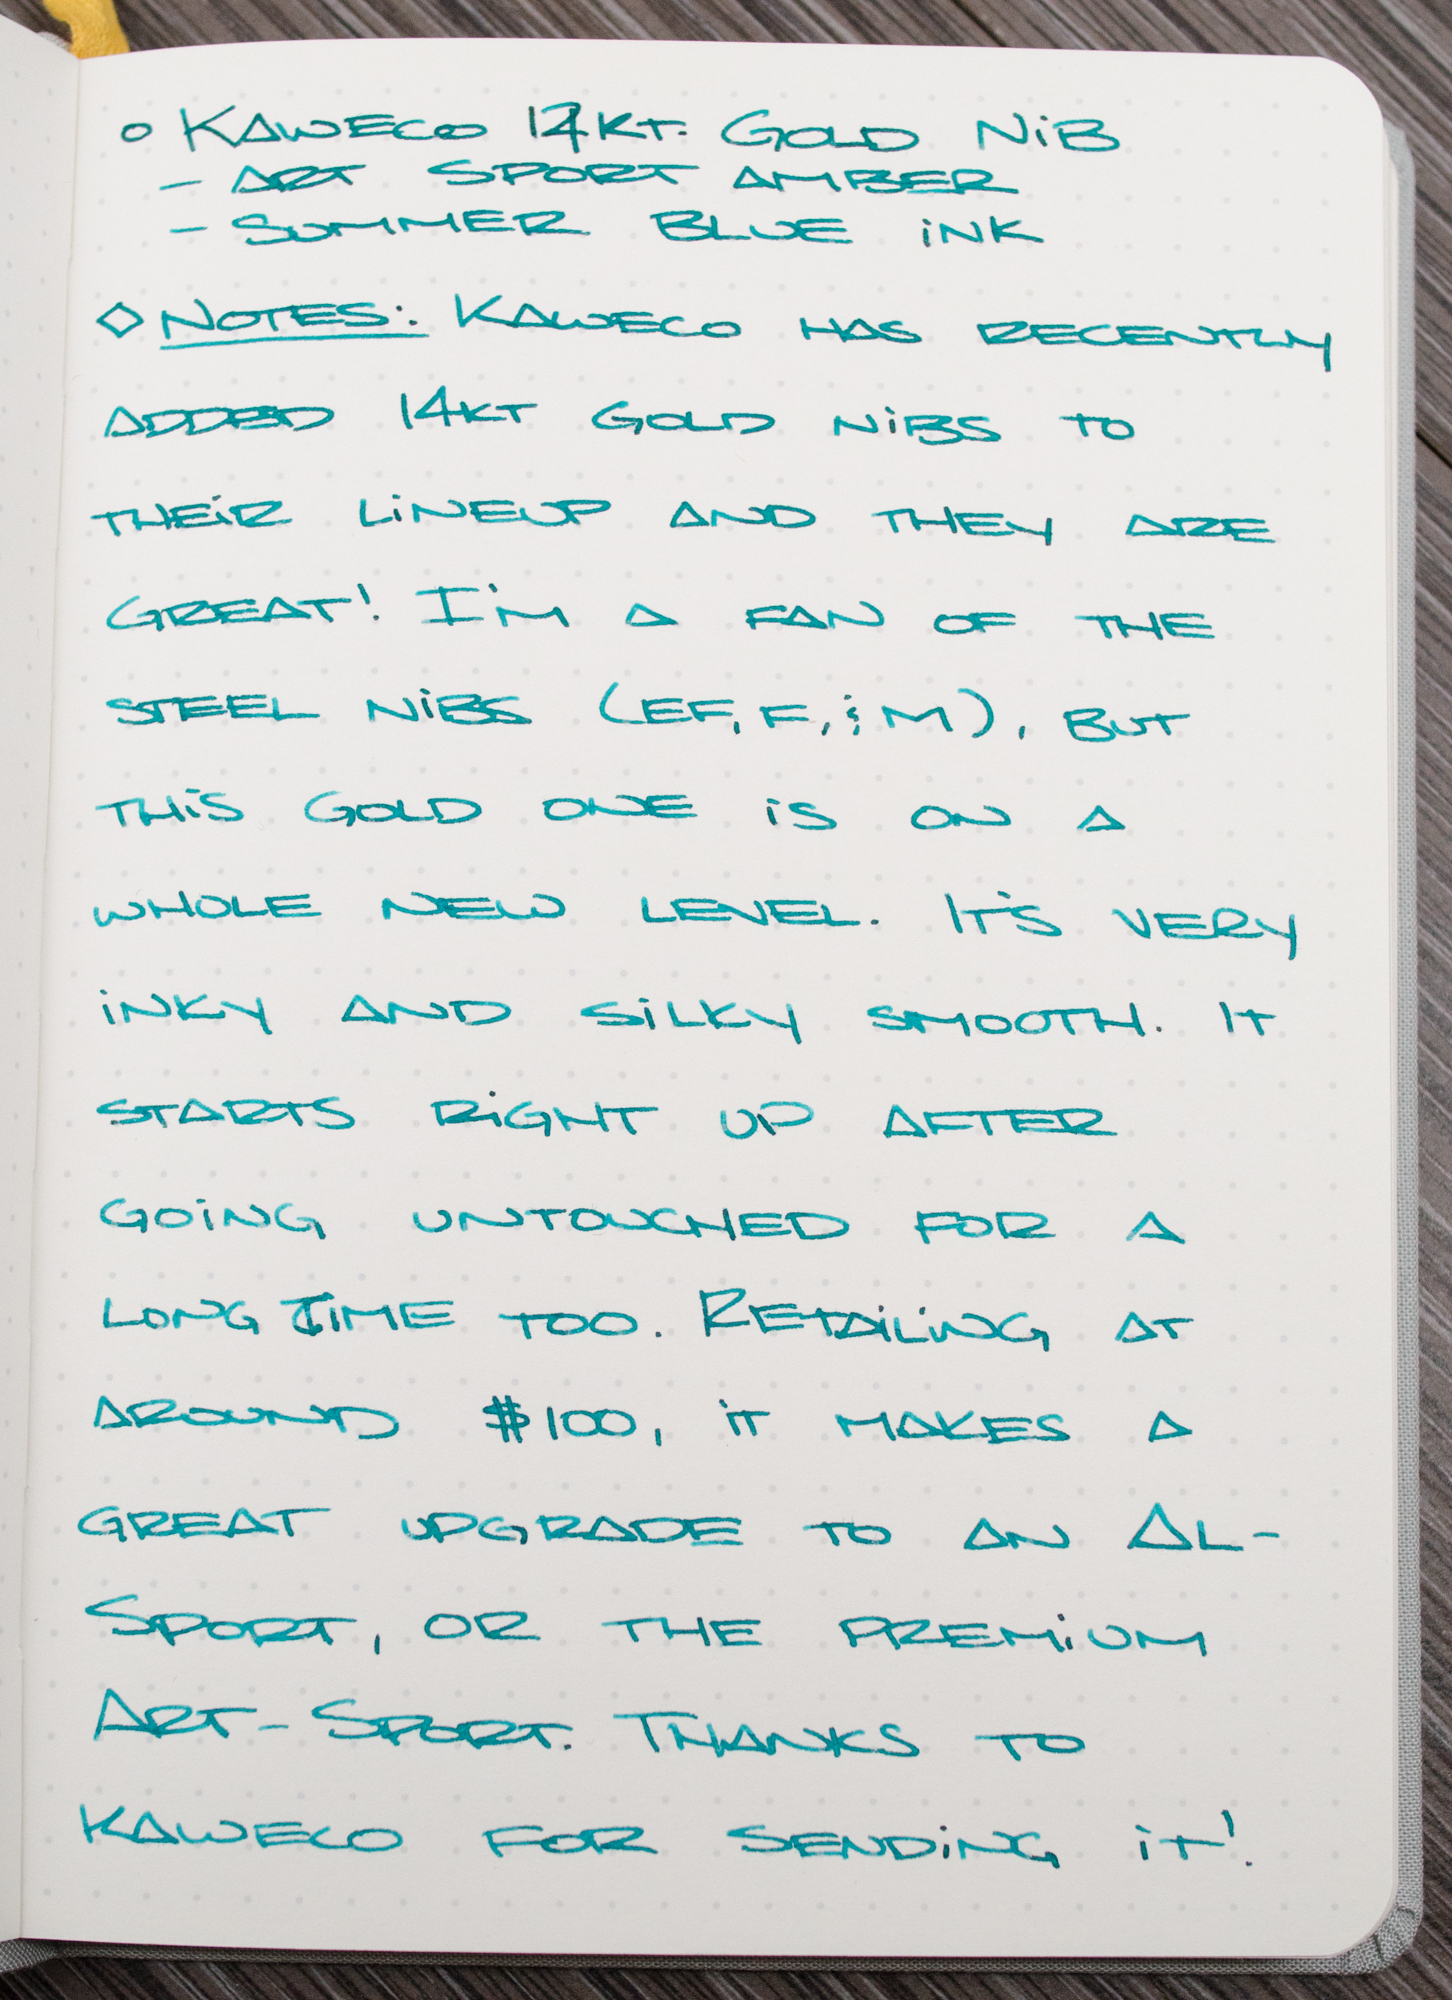 ○ KAWECO 14KT. GOLD NiB
- ART SPORT AMBER
- SUMMER BLUE iNK
◇ NOTES: KAWECO HAS RECENTLY
ADDED 14KT GOLD NiBS TO
THEiR LiNEUP AND THEY ARE
GREAT! I'M A FAN OF THE
STEEL NiBS (EF, F, & M), BUT
THiS GOLD ONE iS ON A
WHOLE NEW LEVEL. IT'S VERY
iNKY AND SiLKY SMOOTH. IT
STARTS RiGHT UP AFTER
GOiNG UNTOUCHED FOR A
LONG TiME TOO. RETAiLiNG AT
AROUND $100, iT MAKES A
GREAT UPGRADE TO AN AL-
SPORT, OR THE PREMiUM
ART-SPORT. THANKS TO
KAWECO FOR SENDiNG iT!